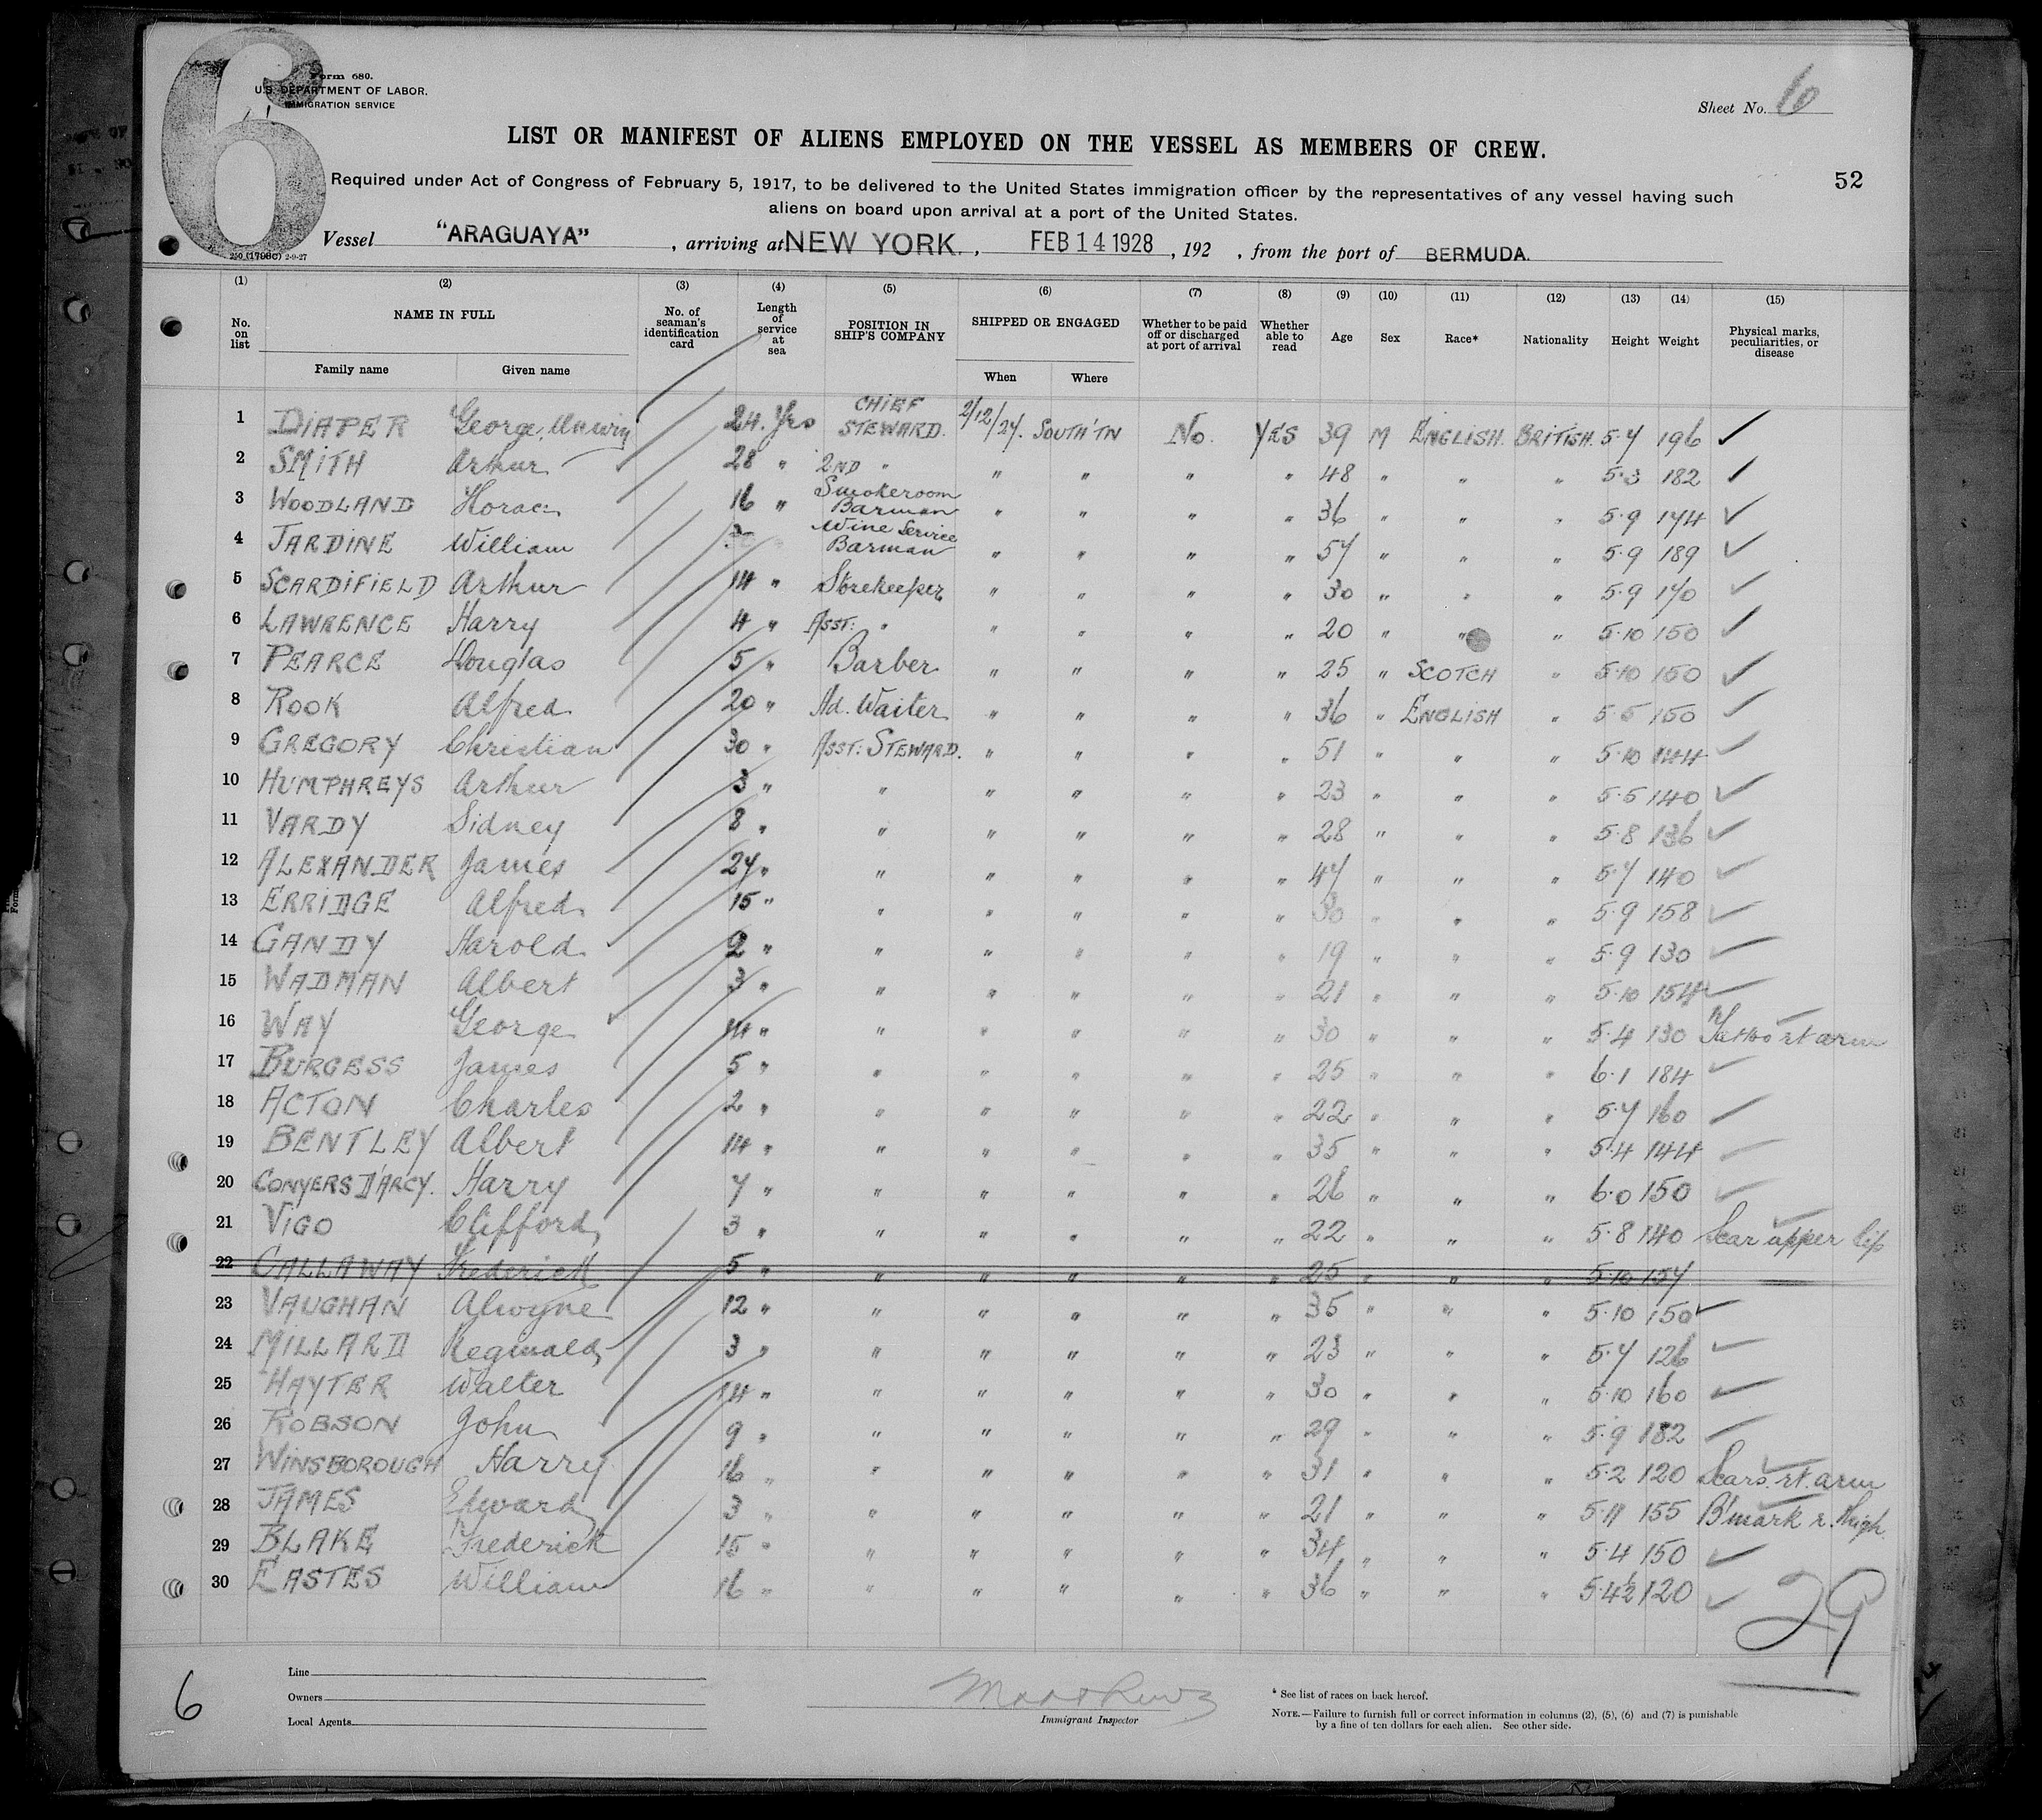 6
Form 680.
U.S. DEPARTMENT OF LABOR.
IMMIGRATION SERVICE
Sheet No. 6
LIST OR MANIFEST OF ALIENS EMPLOYED ON THE VESSEL AS MEMBERS OF CREW.
52
Required under Act of Congress of February 5, 1917, to be delivered to the United States immigration officer by the representatives of any vessel having such
aliens on board upon arrival at a port of the United States.
Vessel "ARAGUAYA", arriving at NEW YORK., FEB 14 1928, 192 , from the port of BERMUDA.
250 (1798C) 2-9-27
(1) (2) (3) (4) (5) (6) (7) (8) (9) (10) (11) (12) (13) (14) (15)
No. on list NAME IN FULL No. of seaman's identification card Length of service at sea POSITION IN SHIP'S COMPANY SHIPPED OR ENGAGED Whether to be paid off or discharged at port of arrival Whether able to read Age Sex Race* Nationality Height Weight Physical marks, peculiarities, or disease
Family name Given name When Where
1 DIAPER George, Unwin 24. Yrs CHIEF STEWARD. 2/12/27. SOUTH'TN No. YES 39 M ENGLISH. BRITISH. 5.7 196 ✓
2 SMITH Arthur 28 " 2ND " " " " " 48 " " " 5.3 182 ✓
3 WOODLAND Horace 16 " Smokeroom Barman " " " " 36 " " " 5.9 174 ✓
4 JARDINE William Wine Service Barman " " " " 57 " " " 5.9 189 ✓
5 SCARDIFIELD Arthur 14 " Storekeeper " " " " 30 " " " 5.9 170 ✓
6 LAWRENCE Harry 4 " ASST: " " " " " 20 " " " 5.10 150 ✓
7 PEARCE Douglas 5 " Barber " " " " 25 " SCOTCH " 5.10 150 ✓
8 ROOK Alfred 20 " Hd. Waiter " " " " 36 " ENGLISH " 5.5 150 ✓
9 GREGORY Christian 30 " ASST: STEWARD. " " " " 51 " " " 5.10 144 ✓
10 HUMPHREYS Arthur 3 " " " " " " 23 " " " 5.5 140 ✓
11 VARDY Sidney 8 " " " " " " 28 " " " 5.8 136 ✓
12 ALEXANDER James 27 " " " " " " 47 " " " 5.7 140 ✓
13 ERRIDGE Alfred 15 " " " " " " 30 " " " 5.9 158 ✓
14 GANDY Harold 2 " " " " " " 19 " " " 5.9 130 ✓
15 WADMAN Albert 3 " " " " " " 21 " " " 5.10 154 ✓
16 WAY George 14 " " " " " " 30 " " " 5.4 130 Tattoo rt arm
17 BURGESS James 5 " " " " " " 25 " " " 6.1 184 ✓
18 ACTON Charles 2 " " " " " " 22 " " " 5.7 160 ✓
19 BENTLEY Albert 14 " " " " " " 35 " " " 5.4 144 ✓
20 CONYERS D'ARCY. Harry 7 " " " " " " 26 " " " 6.0 150 ✓
21 VIGO Clifford 3 " " " " " " 22 " " " 5.8 140 Scar upper lip
22 CALLAWAY Frederick 5 " " " " " " 25 " " " 5.10 157
23 VAUGHAN Alwyne 12 " " " " " " 35 " " " 5.10 150 ✓
24 MILLARD Reginald 3 " " " " " " 23 " " " 5.7 126 ✓
25 HAYTER Walter 14 " " " " " " 30 " " " 5.10 160 ✓
26 ROBSON John 9 " " " " " " 29 " " " 5.9 182 ✓
27 WINSBOROUGH Harry 16 " " " " " " 31 " " " 5.2 120 Scars. rt. arm
28 JAMES Edward 3 " " " " " " 21 " " " 5.11 155 B'mark r. thigh.
29 BLAKE Frederick 15 " " " " " " 34 " " " 5.4 150 ✓
30 EASTES William 16 " " " " " " 36 " " " 5.4½ 120 ✓
29
6
Line
Owners
Local Agents
Immigrant Inspector
* See list of races on back hereof.
NOTE.—Failure to furnish full or correct information in columns (2), (5), (6) and (7) is punishable
by a fine of ten dollars for each alien. See other side.